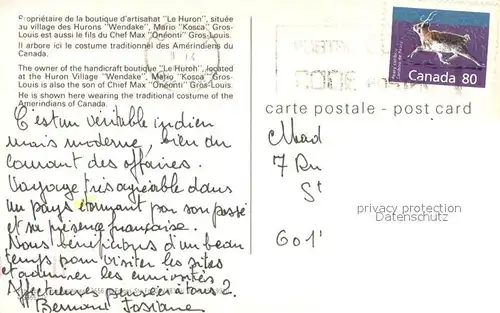 Propriétaire de la boutique d'artisanat "Le Huron", située
au village des Hurons "Wendake", Mario "Kosca" Gros-
Louis est aussi le fils du Chef Max "Onéonti" Gros-Louis.
Il arbore ici le costume traditionnel des Amérindiens du
Canada.
The owner of the handicraft boutique "Le Huron", located
at the Huron Village "Wendake", Mario "Kosca" Gros-
Louis is also the son of Chief Max "Onéonti" Gros-Louis.
He is shown here wearing the traditional costume of the
Amerindians of Canada.
Canada 80
carte postale - post card
C'est un véritable indien
mais moderne, bien au
courant des affaires.
Voyage très agréable dans
un pays étonnant par son passé
et sa présence française.
Nous bénéficions d'un beau
temps pour visiter les sites
et admirer les curiosités
Affectueuses pensées à tous 2.
Bernard Josiane
Mad
7 Ru
St
601
privacy protection
Datenschutz